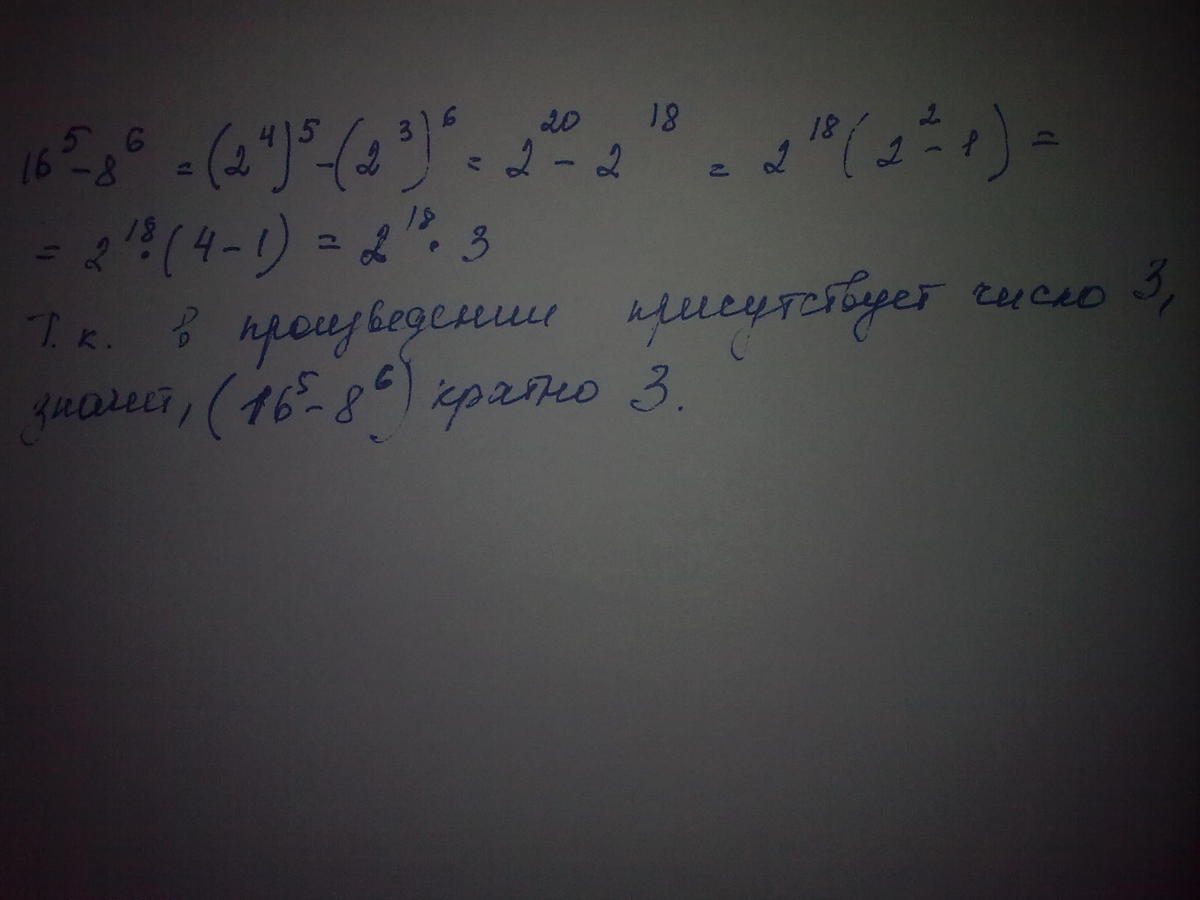 16⁵-8⁶ = (2⁴)⁵-(2³)⁶ = 2²⁰ - 2¹⁸ = 2¹⁸(2²-1) =
= 2¹⁸·(4-1) = 2¹⁸·3
Т.к. в произведении присутствует число 3,
значит, (16⁵-8⁶) кратно 3.